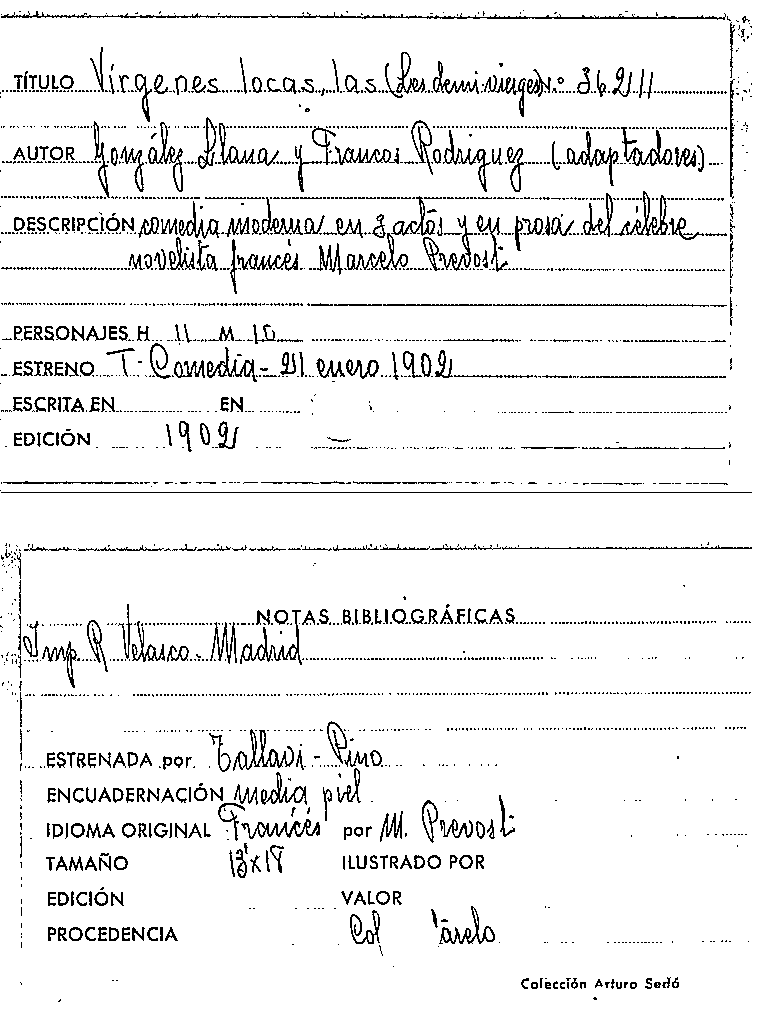 TÍTULO Vírgenes locas, las (Les demi vierges) N.º 36211
AUTOR González Llana y Francos Rodriguez (adaptadores)
DESCRIPCIÓN comedia moderna en 3 actos y en prosa del célebre
novelista francés Marcelo Prevost
PERSONAJES H 11 M 10
ESTRENO T. Comedia - 21 enero 1902
ESCRITA EN EN
EDICIÓN 1902
NOTAS BIBLIOGRÁFICAS
Imp R Velasco. Madrid
ESTRENADA por Tallavi - Pino
ENCUADERNACIÓN media piel
IDIOMA ORIGINAL Francés por M. Prevost
TAMAÑO ILUSTRADO POR
EDICIÓN VALOR
PROCEDENCIA Col
Colección Arturo Sedó